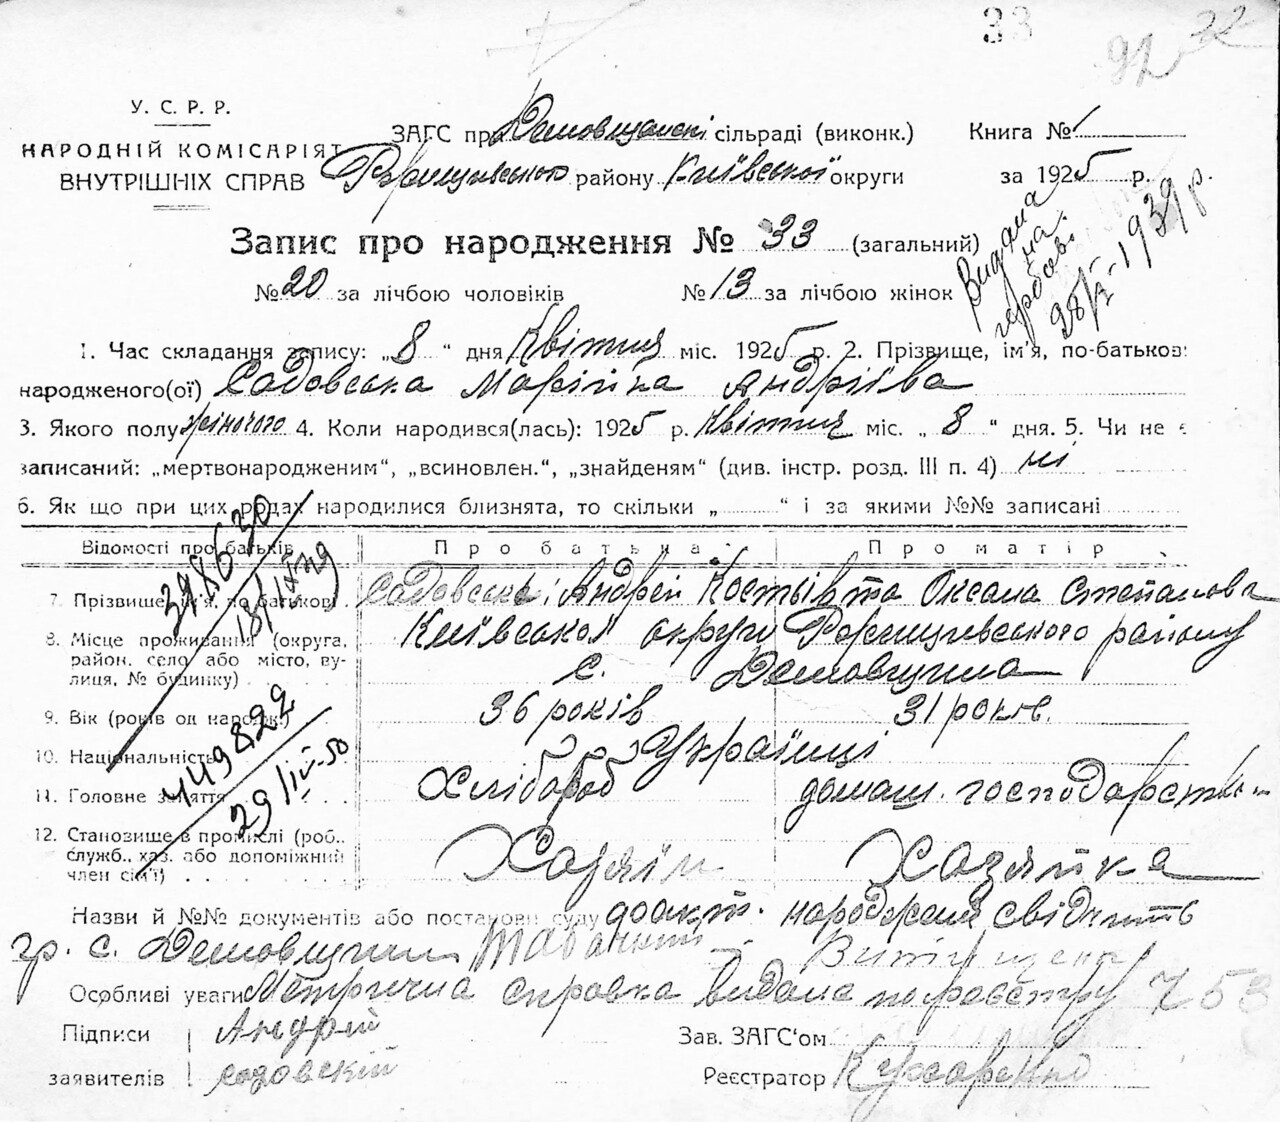 33
92 32
У. С. Р. Р.
НАРОДНІЙ КОМІСАРІЯТ
ВНУТРІШНІХ СПРАВ
ЗАГС при сільраді (виконк.)
району Київської округи
Книга № 1
за 1925 р.
Запис про народження № 33 (загальний)
№ 20 за лічбою чоловіків № 13 за лічбою жінок
Видана
на
1939 р.
1. Час складання запису: „8" дня Квітня міс. 1925 р. 2. Прізвище, ім'я, по-батькові
народженого(ої) Садовська Марійка Андріїва
3. Якого полу жіночого 4. Коли народився(лась): 1925 р. Квітня міс. „8" дня. 5. Чи не є
записаний: „мертвонародженим", „всиновлен.", „знайденям" (див. інстр. розд. III п. 4) ні
6. Як що при цих родах народилися близнята, то скільки „ " і за якими №№ записані
Відомості про батьків Про батька Про матір
7. Прізвище, ім'я, по батькові Садовські Андрей та Оксана Степанова
8. Місце проживання (округа, район, село або місто, вулиця, № будинку) Київської округи района
с. Демовщина
9. Вік (років од народж.) 36 років 31 років.
10. Національність Українці
11. Головне заняття Хлібороб домаш. господарств
12. Становище в промислі (роб., служб., хаз. або допоміжний член сім'ї) Хазяїн Хазяйка
449822
29/IV-50
Назви й №№ документів або постанови суду факт. народження свідчить
гр. с. Демовщини
Особливі уваги Метрична справка видана по реєстру 753
Підписи заявителів Андрій садовскій
Зав. ЗАГС'ом
Реєстратор